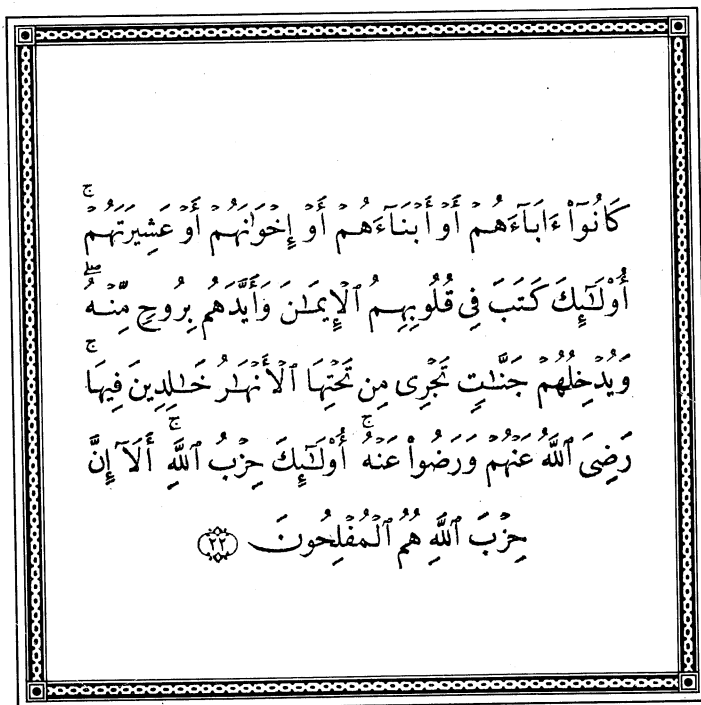 كَانُوٓا۟ ءَابَآءَهُمْ أَوْ أَبْنَآءَهُمْ أَوْ إِخْوَٰنَهُمْ أَوْ عَشِيرَتَهُمْ ۚ
أُو۟لَٰٓئِكَ كَتَبَ فِى قُلُوبِهِمُ ٱلْإِيمَٰنَ وَأَيَّدَهُم بِرُوحٍ مِّنْهُ ۖ
وَيُدْخِلُهُمْ جَنَّٰتٍ تَجْرِى مِن تَحْتِهَا ٱلْأَنْهَٰرُ خَٰلِدِينَ فِيهَا ۚ
رَضِىَ ٱللَّهُ عَنْهُمْ وَرَضُوا۟ عَنْهُ ۚ أُو۟لَٰٓئِكَ حِزْبُ ٱللَّهِ ۚ أَلَآ إِنَّ
حِزْبَ ٱللَّهِ هُمُ ٱلْمُفْلِحُونَ ٢٢